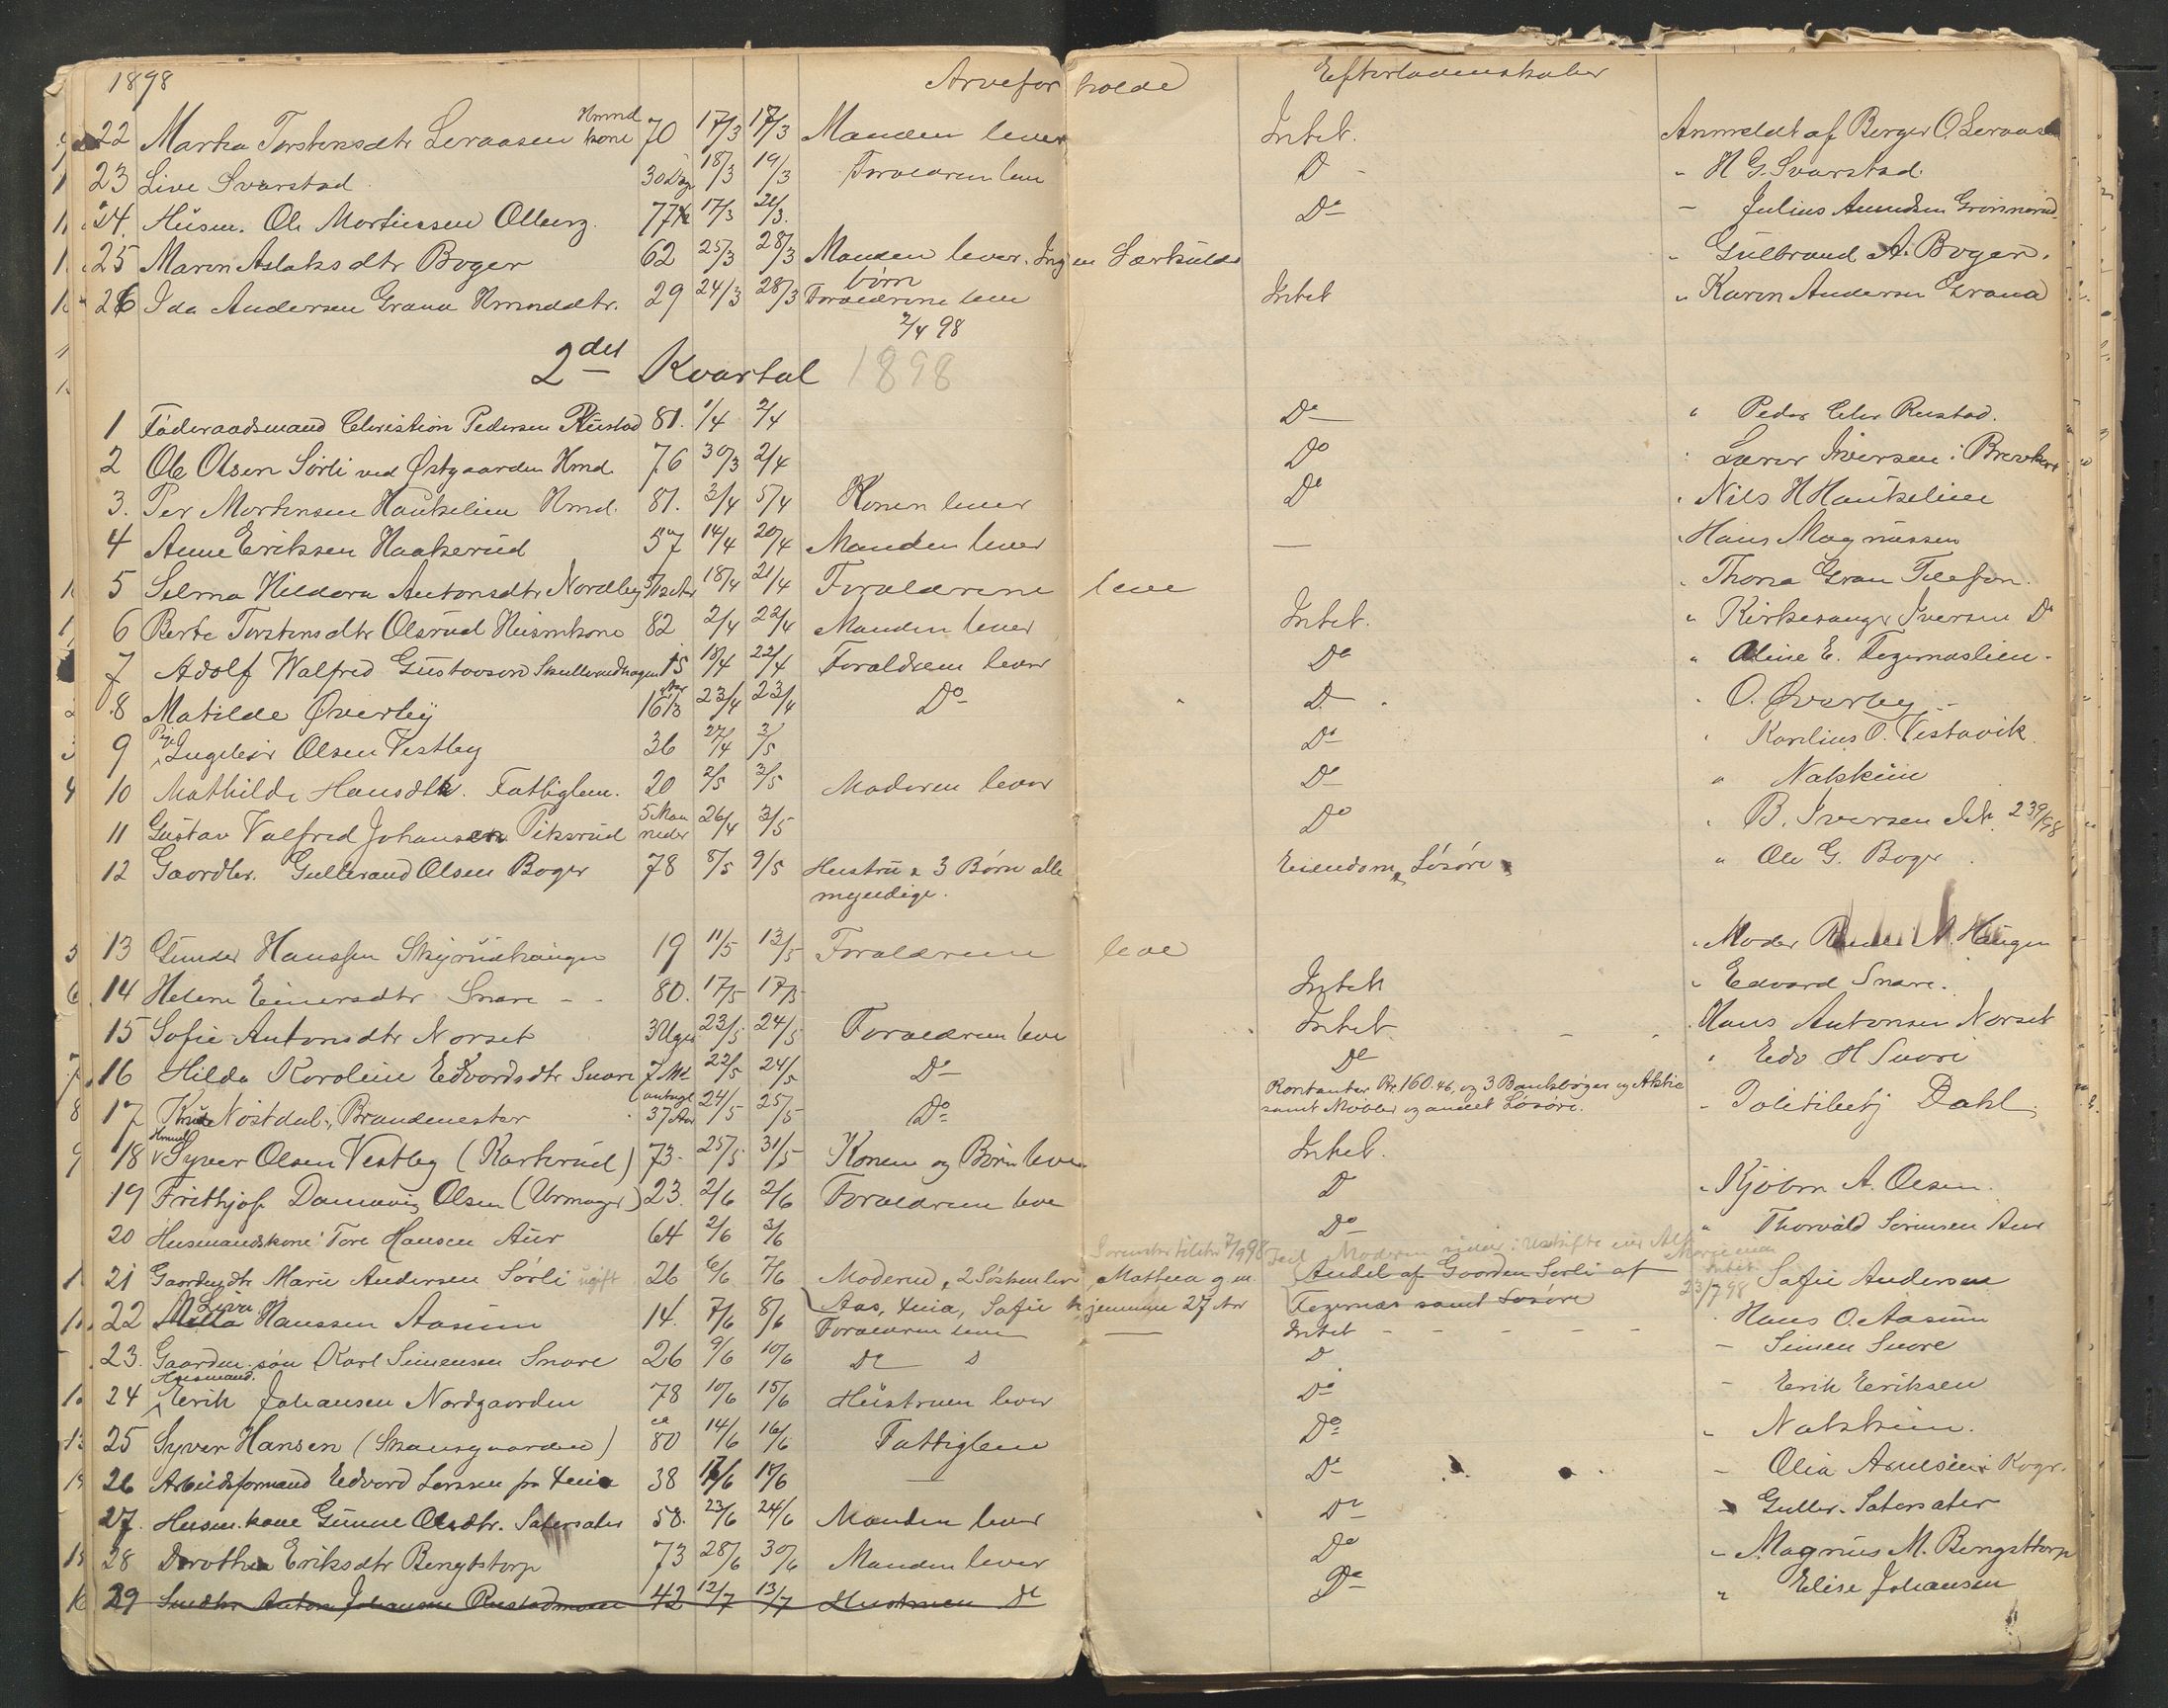 1898 Arvefor holde Efterladenskaber
22 Marta Torstensdtr Leraasen Hmnd kone 70 17/3 17/3 Manden lever Intet. Anmeldt af Berger O. Leraas
23 Live Svarstad 30 Dage 18/3 19/3 Forældren leve D - " H G. Svarstad.
24. Husm. Ole Martinssen Olberg. 77 17/3 21/3. Do - Julius Amundsen
25 Maren Aslaksdtr Boger 62 25/3 28/3 Manden lever. Ingen Særkulds " Gulbrand A. Boger.
børn
26 Ida Andersen Grana Hmnddtr. 29 24/3 28/3 Forældrene leve Intet " Karen Andersen Grana
2/4 98
2det Kvartal 1898
1 Föderaadsmand Christian Pedersen Rustad 81. 1/4 2/4 Do " Peder Chr Rustad.
2 Ole Olsen Sörli ved Østgaarden Hmd. 76 30/3 2/4 Do " Lærer Iversen i
3. Per Mortensen Haukelien Hmd. 81. 3/4 5/4 Konen lever Do " Nils H Haukelien
4 Anne Eriksen Haakerud 57 14/4 20/4 Manden lever — " Hans Magnussen
5 Selma Hildora Antonsdtr Nordby 18/4 21/4 Forældrene leve " Thora Gran Telefon.
6 Berte Torstensdtr Olsrud Husmkone 82 2/4 22/4 Manden lever Intet. " Kirkesanger Iversen Do
7 Adolf Walfred Gustavson 15 18/4 22/4 Forældrene lever Do " Oline E.
8 Matilde Øverby 16 23/4 23/4 Do D " O. Øverby
9 Pige Ingebor Olsen Vestby 36 27/4 3/5 Do " Karelius O. Vestavik
10 Mathilde Hansdtr. Fattiglem. 20 2/5 3/5 Moderen lever Do " Nakkim
11 Gustav Valfred Johansen Piksrud 5 Maaneder 26/4 3/5 Do " B. Iversen
12 Gaardbr. Gulbrand Olsen Boger 78 8/5 9/5 Hustru & 3 Børn alle Eiendom, Løsøre " Ole G. Boger
myndige.
13 Gunder Hanssen Skyrudhaugen 19 11/5 13/5 Forældrene leve " Moder M. Haugen
14 Helene Einersdtr Snare - - 80. 17/5 17/5 Intet " Edvard Snare.
15 Sofie Antonsdtr Norset 3 Uger 23/5 24/5 Forældren leve Intet " Hans Antonsen Norset
16 Hilda Karoline Edvardsdtr Snare 7 Md 22/5 24/5 Do Do " Edv H Snare
17 Knut Nøstdal, Brandmester antagl 37 Aar 24/5 25/5 Do Kontanter Kr. 160.46, og 3 Bankbøger og Aktie
samt Møbler og andet Løsøre. - Politibetj Dahl
18 Hmd Syver Olsen Vestby (Karterud) 73. 25/5 31/5 Konen og Børn leve Intet.
19 Frithjof Olsen (Urmager) 23. 2/6 2/6 Forældren leve D " Kjöbm A. Olsen.
20 Husmandskone Tore Hansen Aur 64 2/6 3/6 Do " Thorvald Sörensen Aur
21 Gaardmdtr Marie Andersen Sörli ugift 26 6/6 7/6 Moderen, 2 Söskende Mathea g. m. Andel af Gaarden Sørli af 23/7 98 Sofie Andersen
Aas, Xnia, Sofie hjemme 27 Aar samt Løsøre
22 Hanssen Aasum 14. 7/6 8/6 Forældren leve — Intet - - - - - Hans O. Aasum
23. Gaardm. søn Karl Simensen Snare 26 9/6 10/6 Do D D - Simen Snare
24 Husmand. Erik Johansen Nordgaarden 78 10/6 15/6 Hustruen lever Do - Erik Eriksen
25 Syver Hansen (Skansgaarden) ca 80 14/6 16/6 Fattiglem Do " Nakkim.
26 Arbeidsformand Edvard Larssen fra Xnia 38 17/6 18/6 — Do - Olia
27. Husm. kone Gunne Olsdtr. Satersater 58. 23/6 24/6 Manden lever Do - Gulbr. Satersater
28 Dorothea Eriksdtr Bengtstorp 73 28/6 30/6 Manden lever Do - Magnus M. Bengsttorp
29 Anton Johansen 42 12/7 13/7 Hustruen Do Do " Elise Johansen